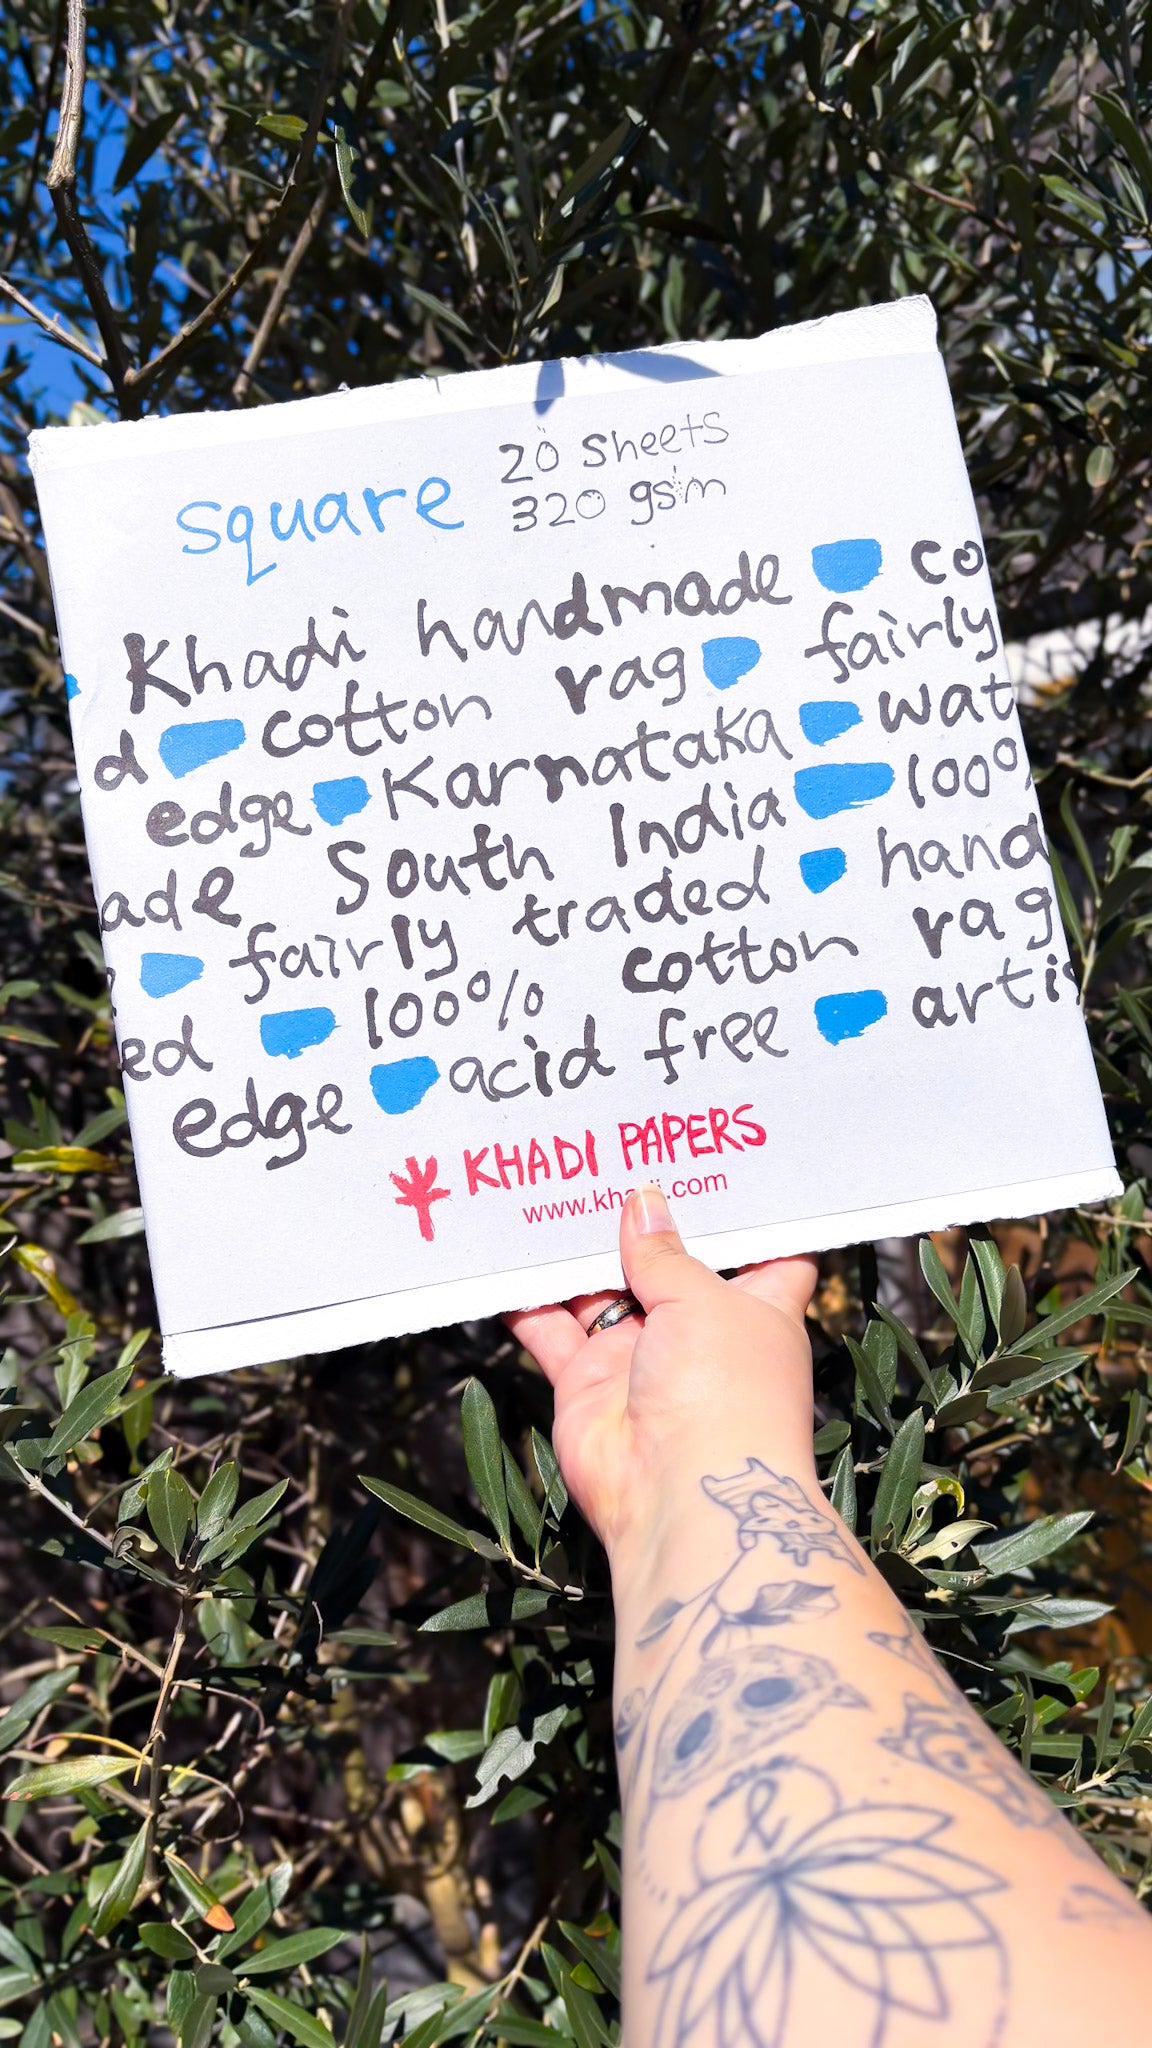 square
20 sheets
320 gsm
Khadi handmade co
d cotton rag fairly
edge Karnataka wat
ade South India 100%
fairly traded hand
ed 100% cotton rag
edge acid free artis
KHADI PAPERS
www.khadi.com